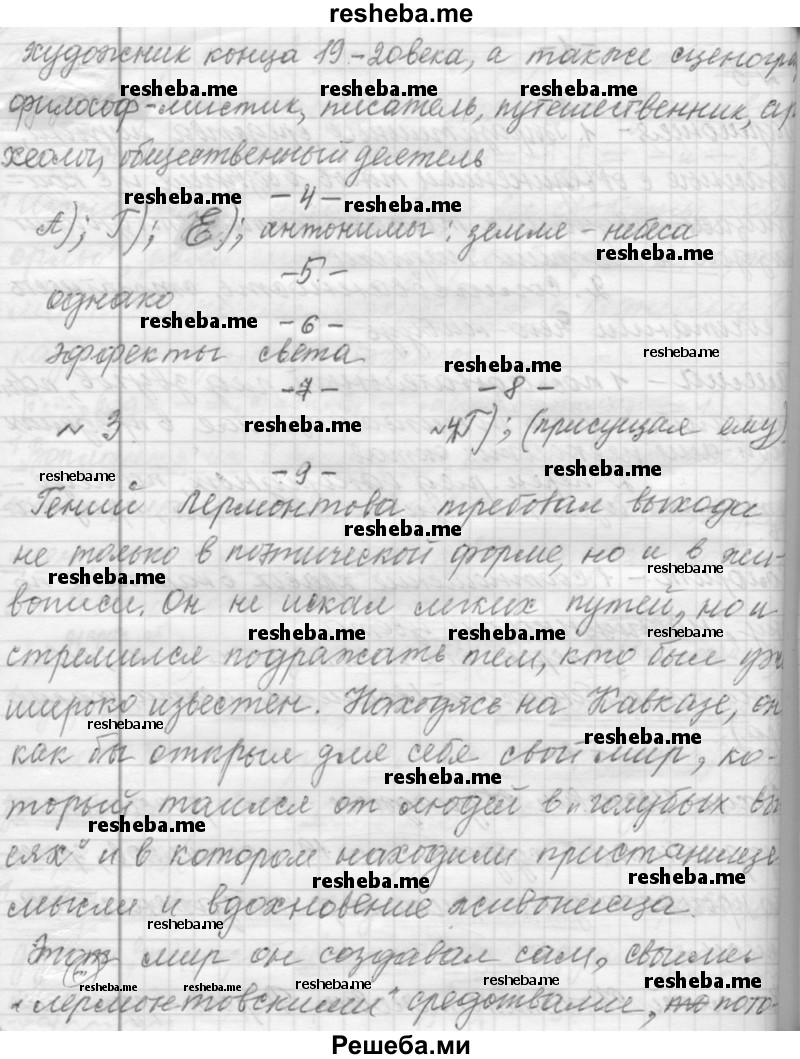 resheba.me
художник конца 19-20 века, а также сценогра
resheba.me resheba.me resheba.me
философ-мистик, писатель, путешественник, ар
хеолог, общественный деятель
resheba.me -4- resheba.me
А); Г); Е); антонимы: земля - небеса
resheba.me
-5-
однако
resheba.me -6-
эффекты света
resheba.me resheba.me
-7- -8-
~ 3 resheba.me ~4Г); (присущая ему)
resheba.me -9- resheba.me
Гений Лермонтова требовал выхода
resheba.me
не только в поэтической форме, но и в жи-
resheba.me resheba.me
вописи. Он не искал легких путей, но и
resheba.me resheba.me resheba.me
стремился подражать тем, кто был уж
широко известен. Находясь на Кавказе, он
resheba.me resheba.me
как бы открыл для себя свой мир, ко-
resheba.me
торый таился от людей в „голубых вы
resheba.me
сях“ и в котором находили пристанище
resheba.me resheba.me
мысли и вдохновение живописца.
resheba.me
Этот мир он создавал сам, своими
resheba.me resheba.me resheba.me resheba.me resheba.me
„лермонтовскими“ средствами, пото-
Решеба.ми